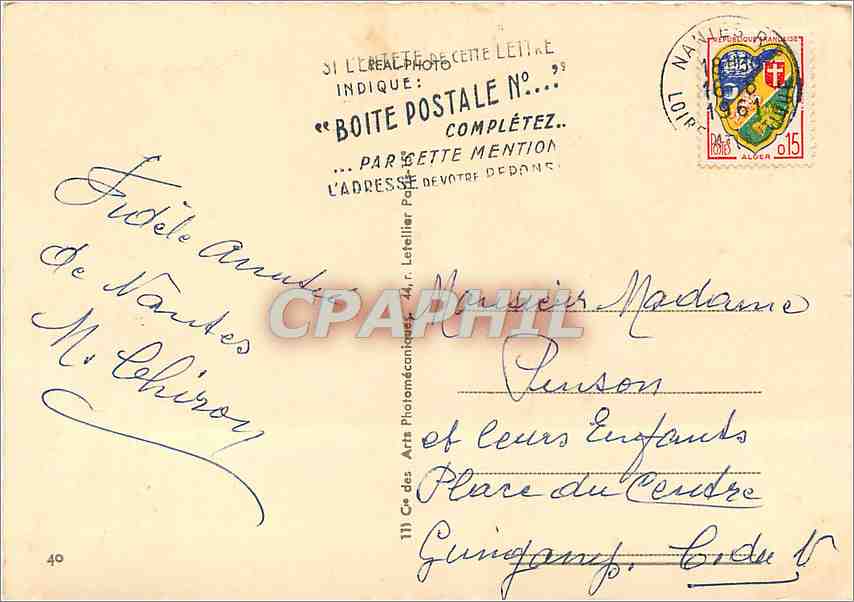 SI L'ENTETE DE CETTE LETTRE
REAL-PHOTO
INDIQUE:
"BOITE POSTALE N°...."
COMPLÉTEZ..
...PAR CETTE MENTION
L'ADRESSE DE VOTRE REPONSE
NANTES
18H30
1961
LOIRE
REPUBLIQUE FRANÇAISE
POSTES
ALGER
0,15
Fidèle Amitié
de Nantes
M. Chiron
40
11) Cie des Arts Photomécaniques, 44, r. Letellier
CPAPHIL
Monsieur Madame
Penson
et leurs Enfants
Place du Centre
Guingamp. C. du N